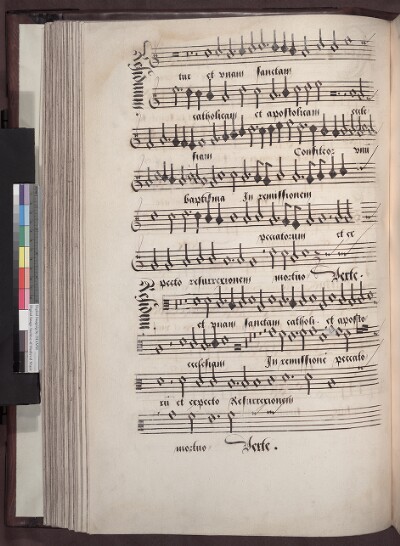 tur et vnam sanctam
catholicam et apostolicam eccle
siam Confiteor vnū
baptisma In remissionem
peccatorum et ex
pecto resurrexionem mortuo Verte.
et vnam sanctam catholi. et aposto
ecclesiam In remissionē peccato
rū et expecto Resurrexionem
mortuo Verte.